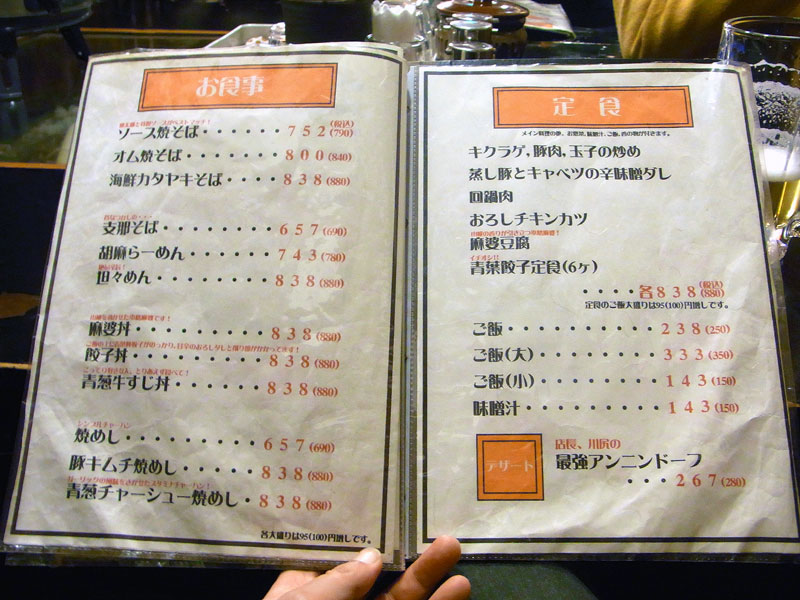 お食事
ソース焼そば・・・・・・・752(790)
(税込)
オム焼そば・・・・・・・・800(840)
海鮮カタヤキそば・・・・・838(880)
支那そば・・・・・・・・・657(690)
胡麻らーめん・・・・・・・743(780)
坦々めん・・・・・・・・・838(880)
麻婆丼・・・・・・・・・・838(880)
餃子丼・・・・・・・・・・838(880)
青葱牛すじ丼・・・・・・・838(880)
シンプルチャーハン
焼めし・・・・・・・・・・657(690)
豚キムチ焼めし・・・・・・838(880)
青葱チャーシュー焼めし・838(880)
各大盛りは95(100)円増しです。
定食
キクラゲ,豚肉,玉子の炒め
蒸し豚とキャベツの辛味噌ダレ
回鍋肉
おろしチキンカツ
麻婆豆腐
イチオシ!!
青葉餃子定食(6ヶ)
(税込)
・・・・各838(880)
定食のご飯大盛りは95(100)円増しです。
ご飯・・・・・・・・・・238(250)
ご飯(大)・・・・・・・・333(350)
ご飯(小)・・・・・・・・143(150)
味噌汁・・・・・・・・・143(150)
デザート
店長、川尻の
最強アンニンドーフ
・・・267(280)